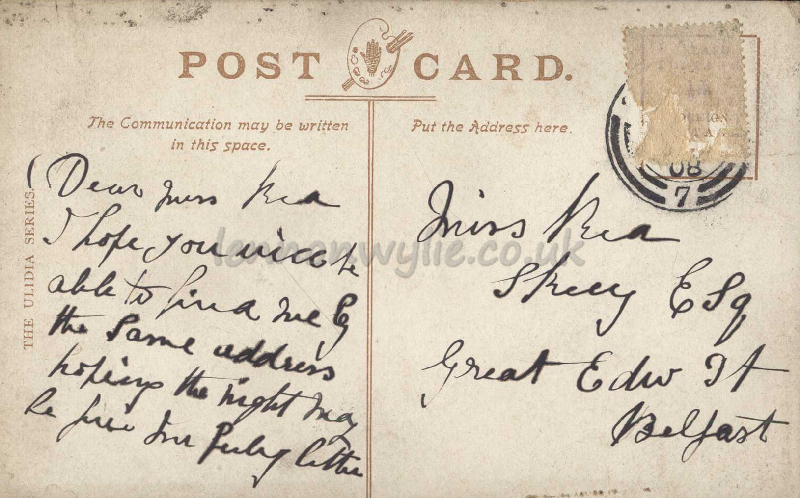 POST CARD.
The Communication may be written
in this space.
Put the Address here.
THE ULIDIA SERIES.
08
7
Dear Miss Rea
I hope you will be
able to find me by
the same address
hoping the night may
be fine
Miss Rea
Esq
Great Edw St
Belfast
lennonwylie.co.uk